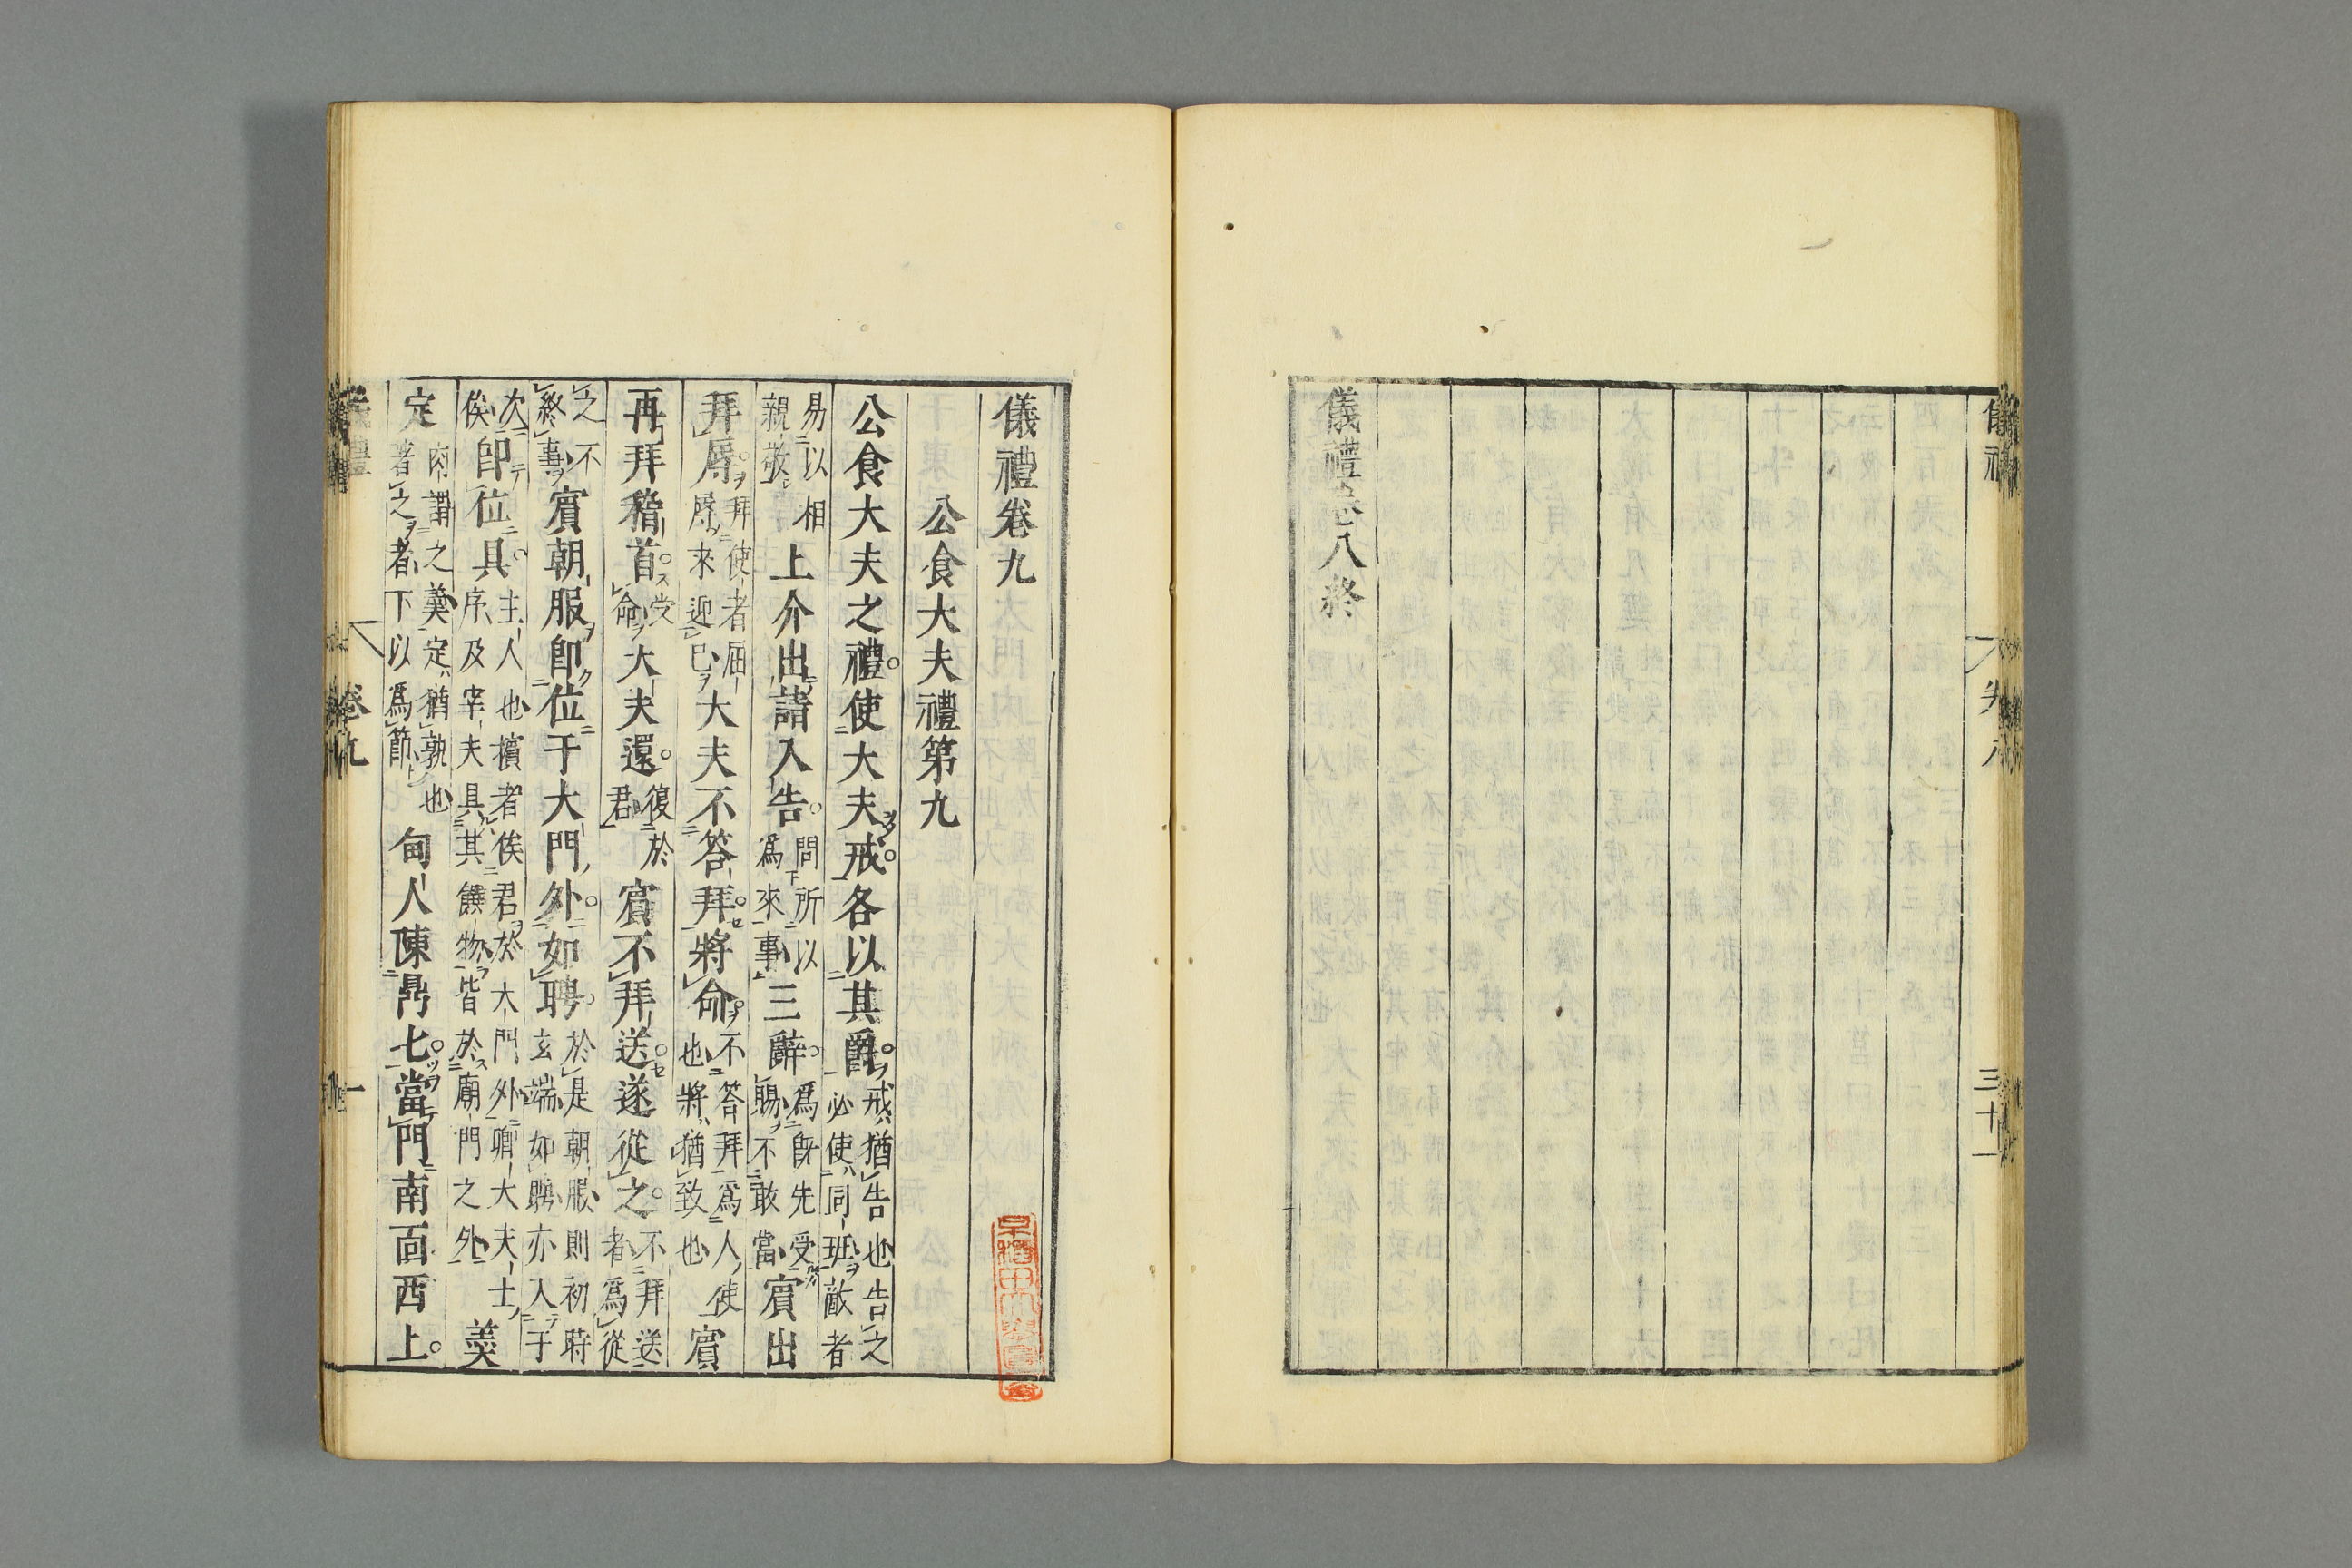 儀禮卷八終
儀禮卷九
公食大夫禮第九
公食大夫之禮。使大夫戒。各以其爵。戒猶告也告之必使同班敵者
易以相親敬上介出請入告。問所以爲來事三辭。爲既先受賜不敢當賓出
拜辱。拜使者屈辱來迎已大夫不答拜。將命。不答拜爲人使也將猶致也賓
再拜稽首。受命大夫還。復於君賓不拜送。遂從之。不拜送者爲從
之不終事賓朝服卽位于大門外。如聘。於是朝服則初時玄端如聘亦入于
次俟卽位。具。主人也擯者俟君於大門外卿大夫士序及宰夫具其饌物皆於廟門之外羹
定肉謂之羹定猶孰也著之者下以爲節甸人陳鼎七。當門南面西上。
卷九
一
早稻田大學圖書